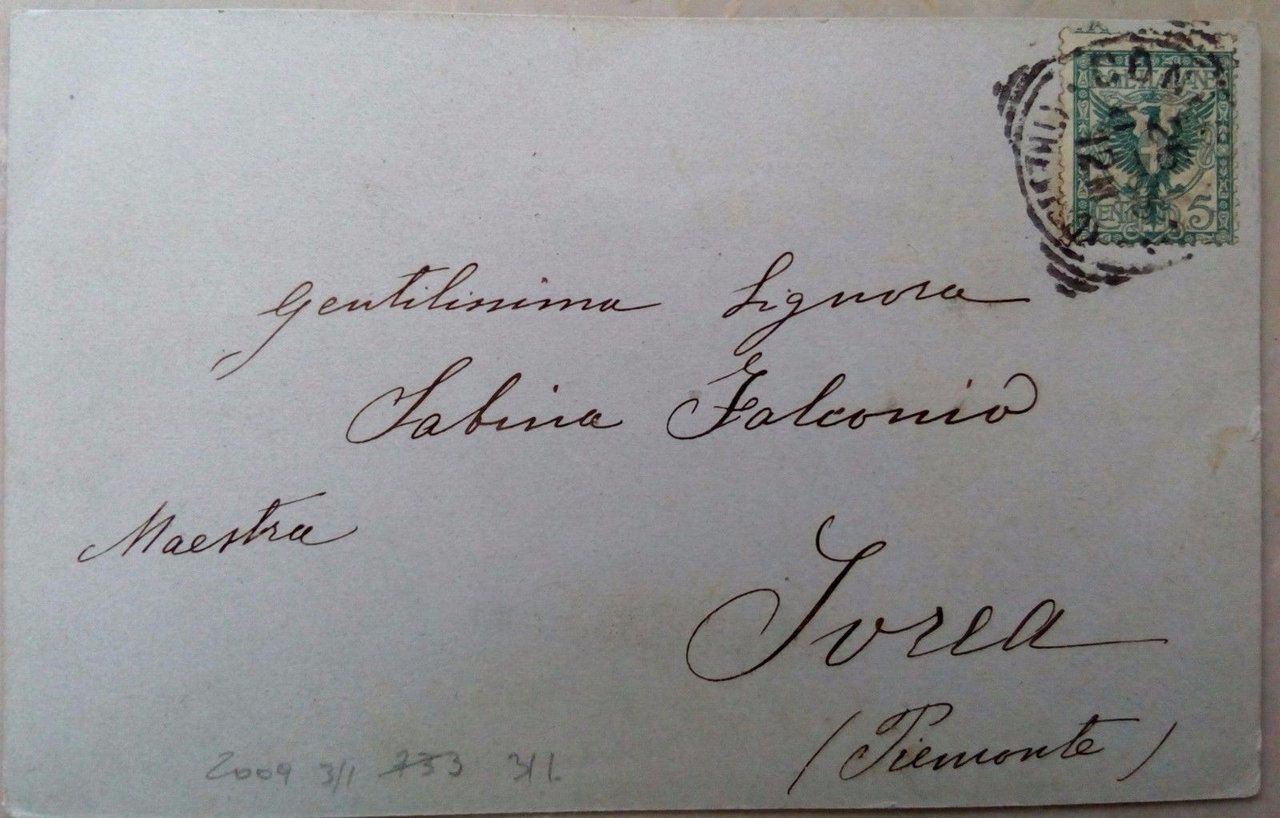 CON
12 M
5
Gentilissima Signora
Sabina Falconio
Maestra
Ivrea
(Piemonte)
2009 3/1 753 3/1.